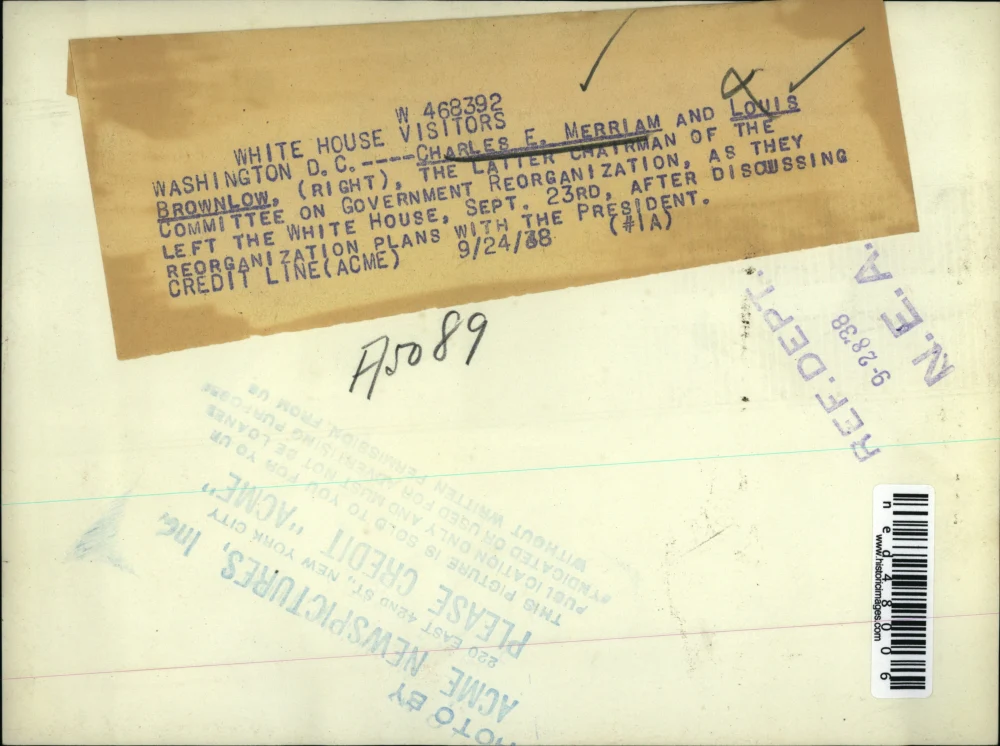 W 468392
WHITE HOUSE VISITORS
WASHINGTON D.C. ----CHARLES E. MERRIAM AND LOUIS
BROWNLOW, (RIGHT), THE LATTER CHAIRMAN OF THE
COMMITTEE ON GOVERNMENT REORGANIZATION, AS THEY
LEFT THE WHITE HOUSE, SEPT. 23RD, AFTER DISCUSSING
REORGANIZATION PLANS WITH THE PRESIDENT.
CREDIT LINE(ACME) 9/24/38 (#1A)
A5089
REF. DEPT.
9-28 38
N. E. A.
HOTO BY
ACME NEWSPICTURES, Inc.
220 EAST 42ND ST., NEW YORK CITY
PLEASE CREDIT "ACME"
THIS PICTURE IS SOLD TO YOU FOR YOUR
PUBLICATION ONLY AND MUST NOT BE LOANED
SYNDICATED OR USED FOR ADVERTISING PURPOSES
WITHOUT WRITTEN PERMISSION FROM US
ned48006
www.historicimages.com